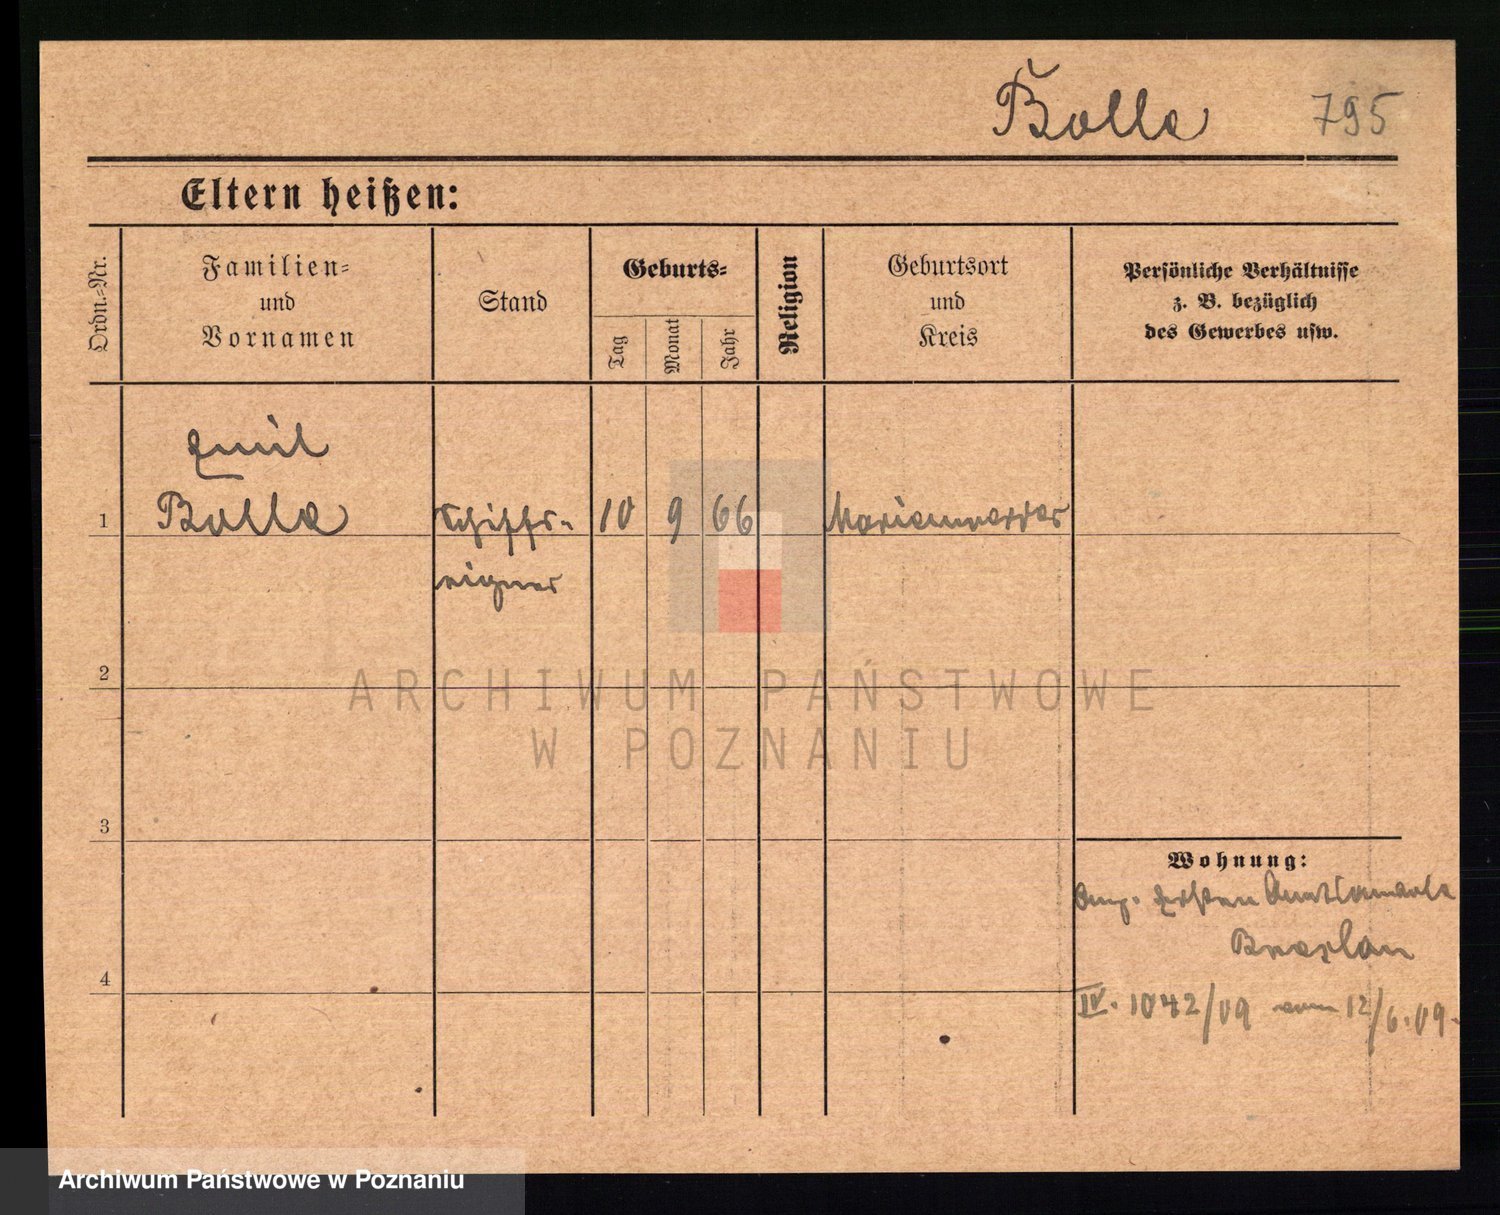 Bolle 795
Eltern heißen:
Ordn.-Nr.
Familien-
und
Vornamen
Stand
Geburts-
Tag
Monat
Jahr
Religion
Geburtsort
und
Kreis
Persönliche Verhältnisse
z. B. bezüglich
des Gewerbes usw.
Emil
1 Bolle Schiffs- 10 9 66 Marienwerder
eigner
2
3
Wohnung:
Ersten
Breslau
4
IV. 1042/09 vom 12/6.09.
ARCHIWUM PAŃSTWOWE
W POZNANIU
Archiwum Państwowe w Poznaniu